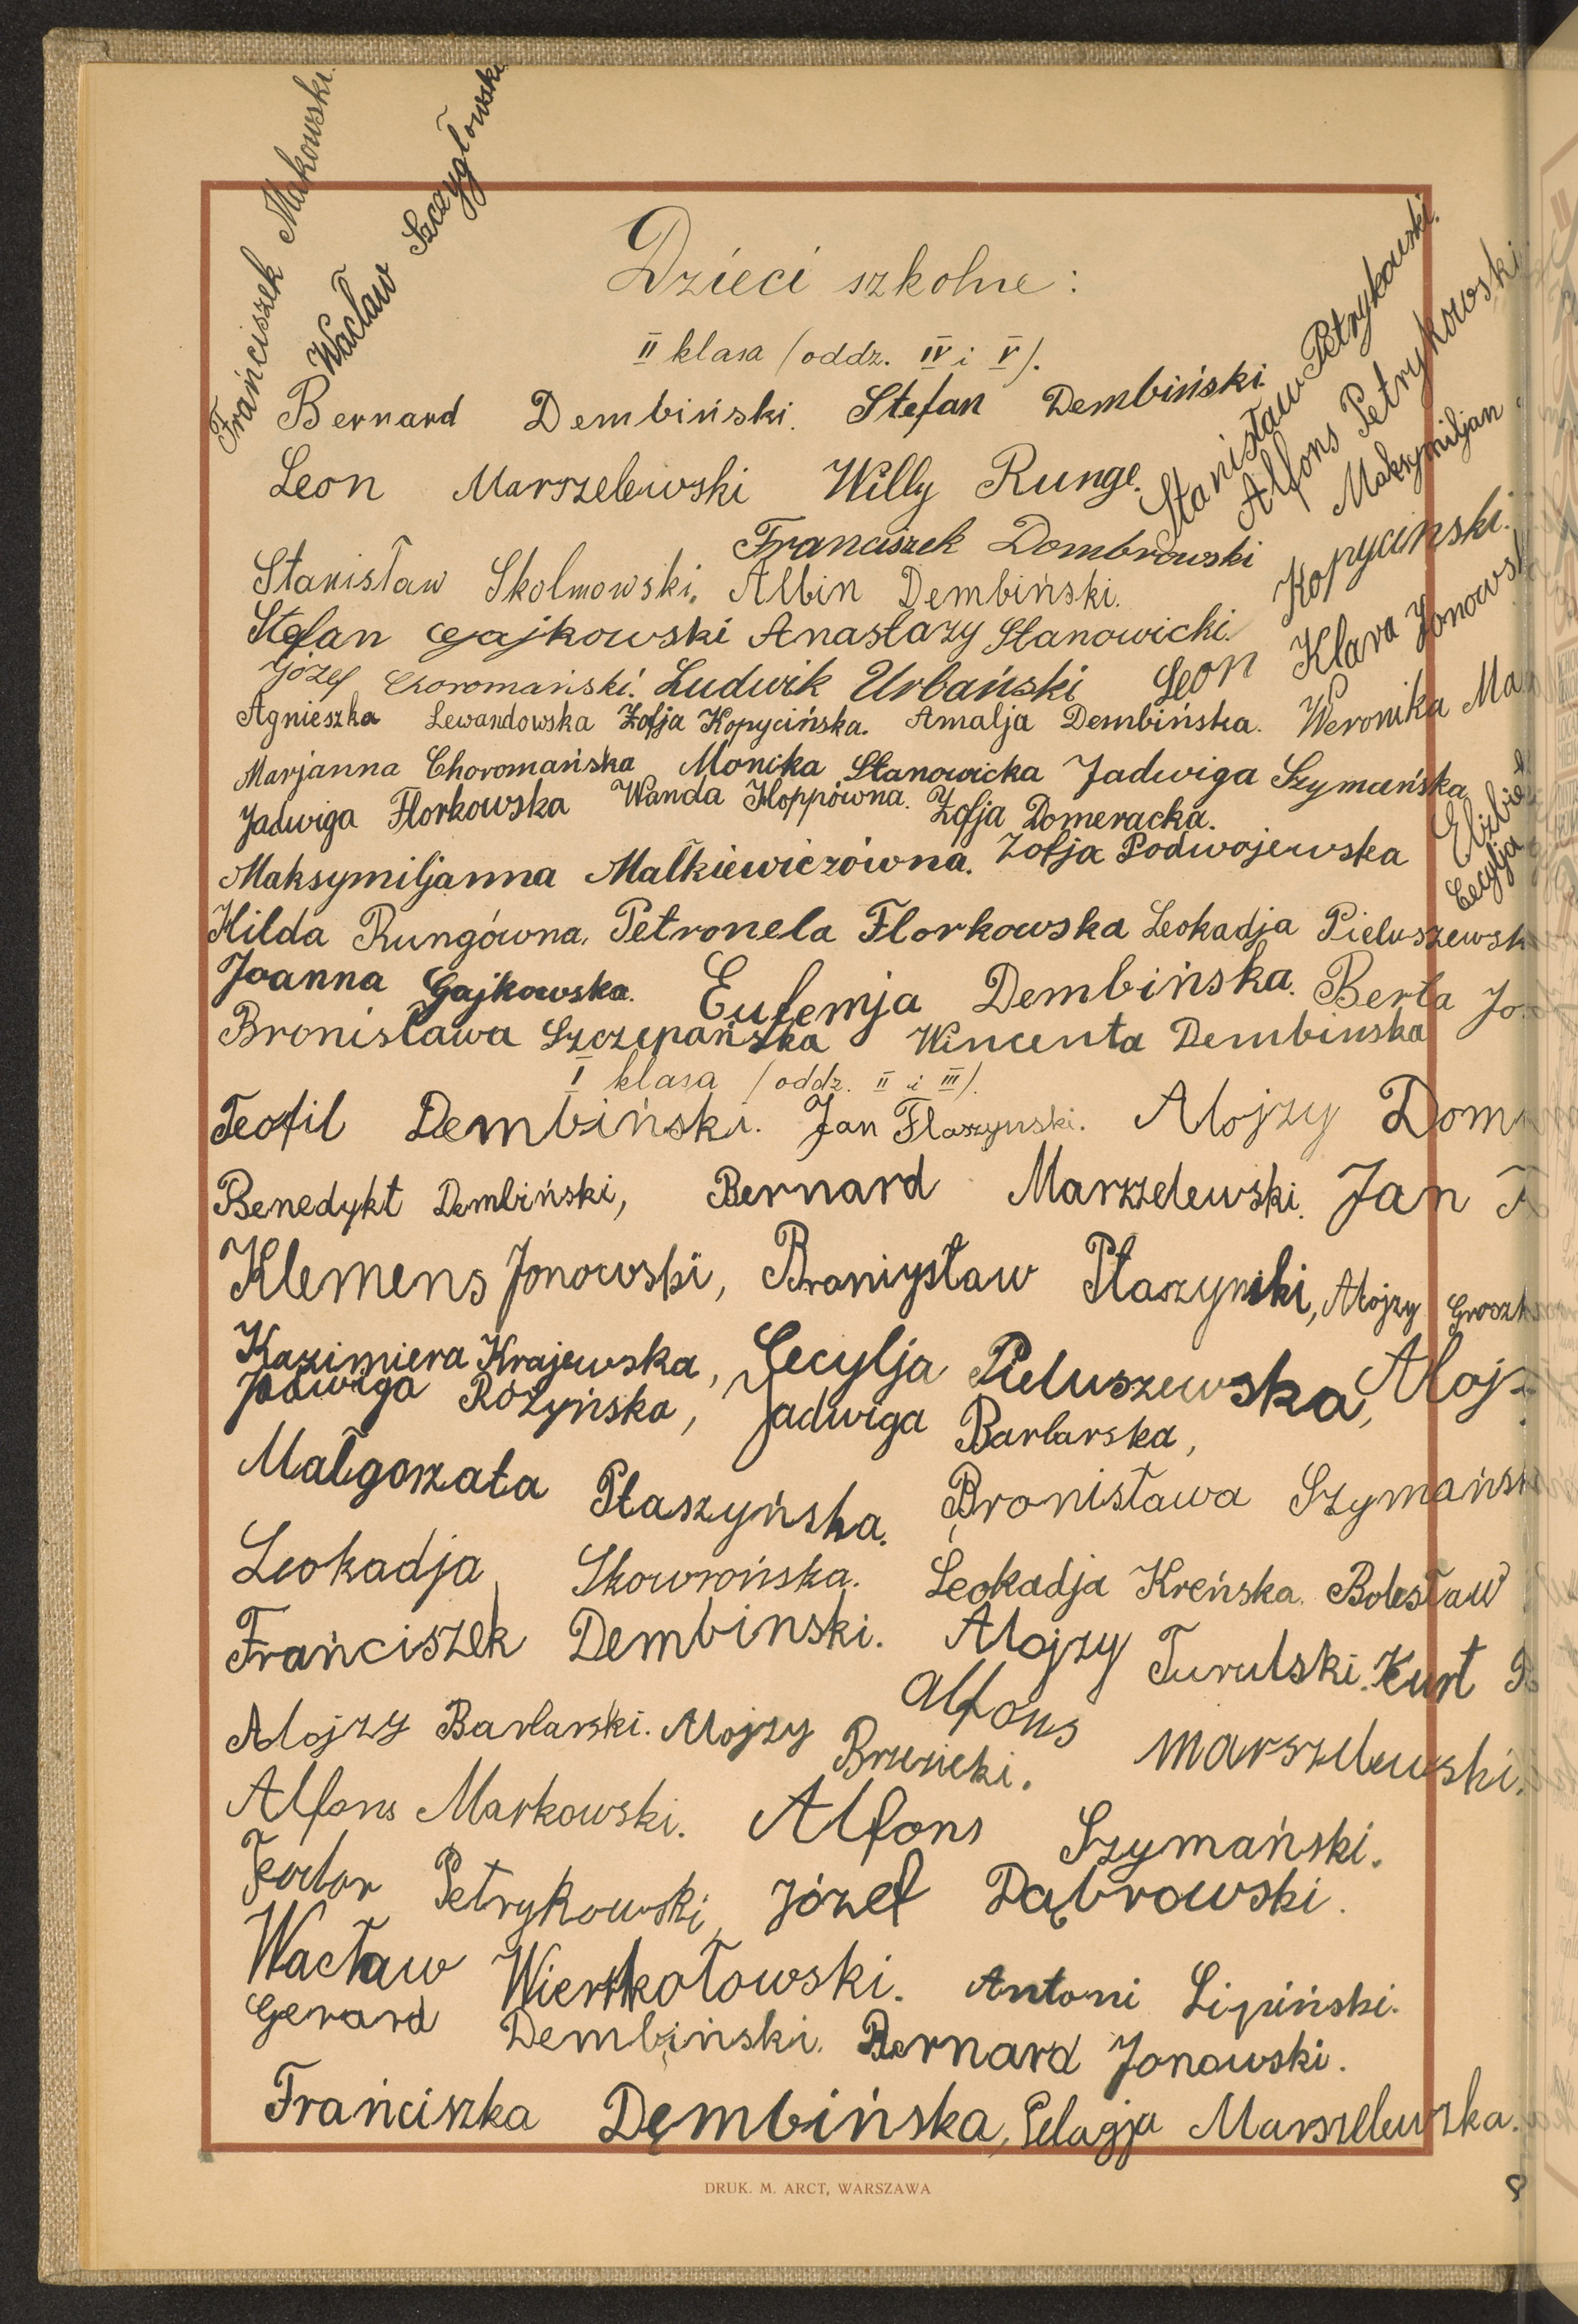 Frańciszek Makowski.
Wacław Szczygłowski.
Dzieci szkolne:
II klasa (oddz. IV i V).
Bernard Dembiński. Stefan Dembiński.
Stanisław Petrykowski.
Alfons Petrykowski
Maksymiljan
Leon Marszelewski Willy Runge.
Franciszek Dombrowski
Stanisław Skolmowski. Albin Dembiński.
Stefan Gajkowski Anastazy Stanowicki.
Józef Choromański. Ludwik Urbański Leon Kopyciński.
Klara Jonows
Agnieszka Lewandowska Zofja Kopycińska. Amalja Dembińska. Weronika Ma
Marjanna Choromańska Monika Stanowicka Jadwiga Szymańska
Jadwiga Florkowska Wanda Hoppówna. Zofja Domeracka.
Elzbie
Cecylja
Maksymiljanna Małkiewiczówna. Zofja Podwojewska
Hilda Rungówna, Petronela Florkowska Leokadja Pieluszewsk
Joanna Gajkowska. Eufemja Dembińska. Berta Jo
Bronisława Szczepańska Wincenta Dembinska
I klasa (oddz. II i III).
Teofil Dembiński. Jan Flaszynski. Alojzy Dom
Benedykt Dembiński, Bernard Marszelewski. Jan
Klemens Jonowski, Branisław Płaszynski, Alojzy Groszk
Kazimiera Krajewska, Cecylja Pieluszewska, Aloj
Jadwiga Różyńska, Jadwiga Barlarska,
Małgorzata Płaszyńska. Bronisława Szymańsk
Leokadja Skowrońska. Leokadja Kreńska. Bolesław
Frańciszek Dembinski. Alojzy Turulski. Kurt
Alojzy Barlarski. Alojzy Brzezicki. Alfons Marszelewski.
Alfons Markowski. Alfons Szymański.
Teodor Petrykowski, Józef Dąbrowski.
Wacław Wierzkołowski. Antoni Lipiński.
Gerard Dembiński. Bernard Jonowski.
Frańciszka Dęmbińska, Pelagja Marszelewska.
DRUK. M. ARCT, WARSZAWA
8